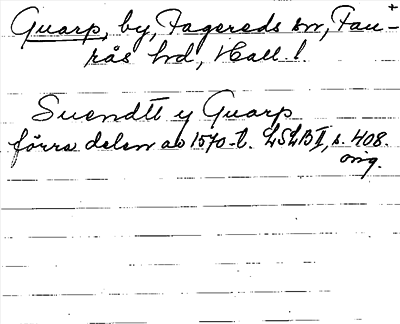 Guarp, by, Fagereds sn, Fau-
rås hd, Hall. l.
Suendtt y Guarp
förra delen av 1570-t. LSLB II, s. 408.
orig.